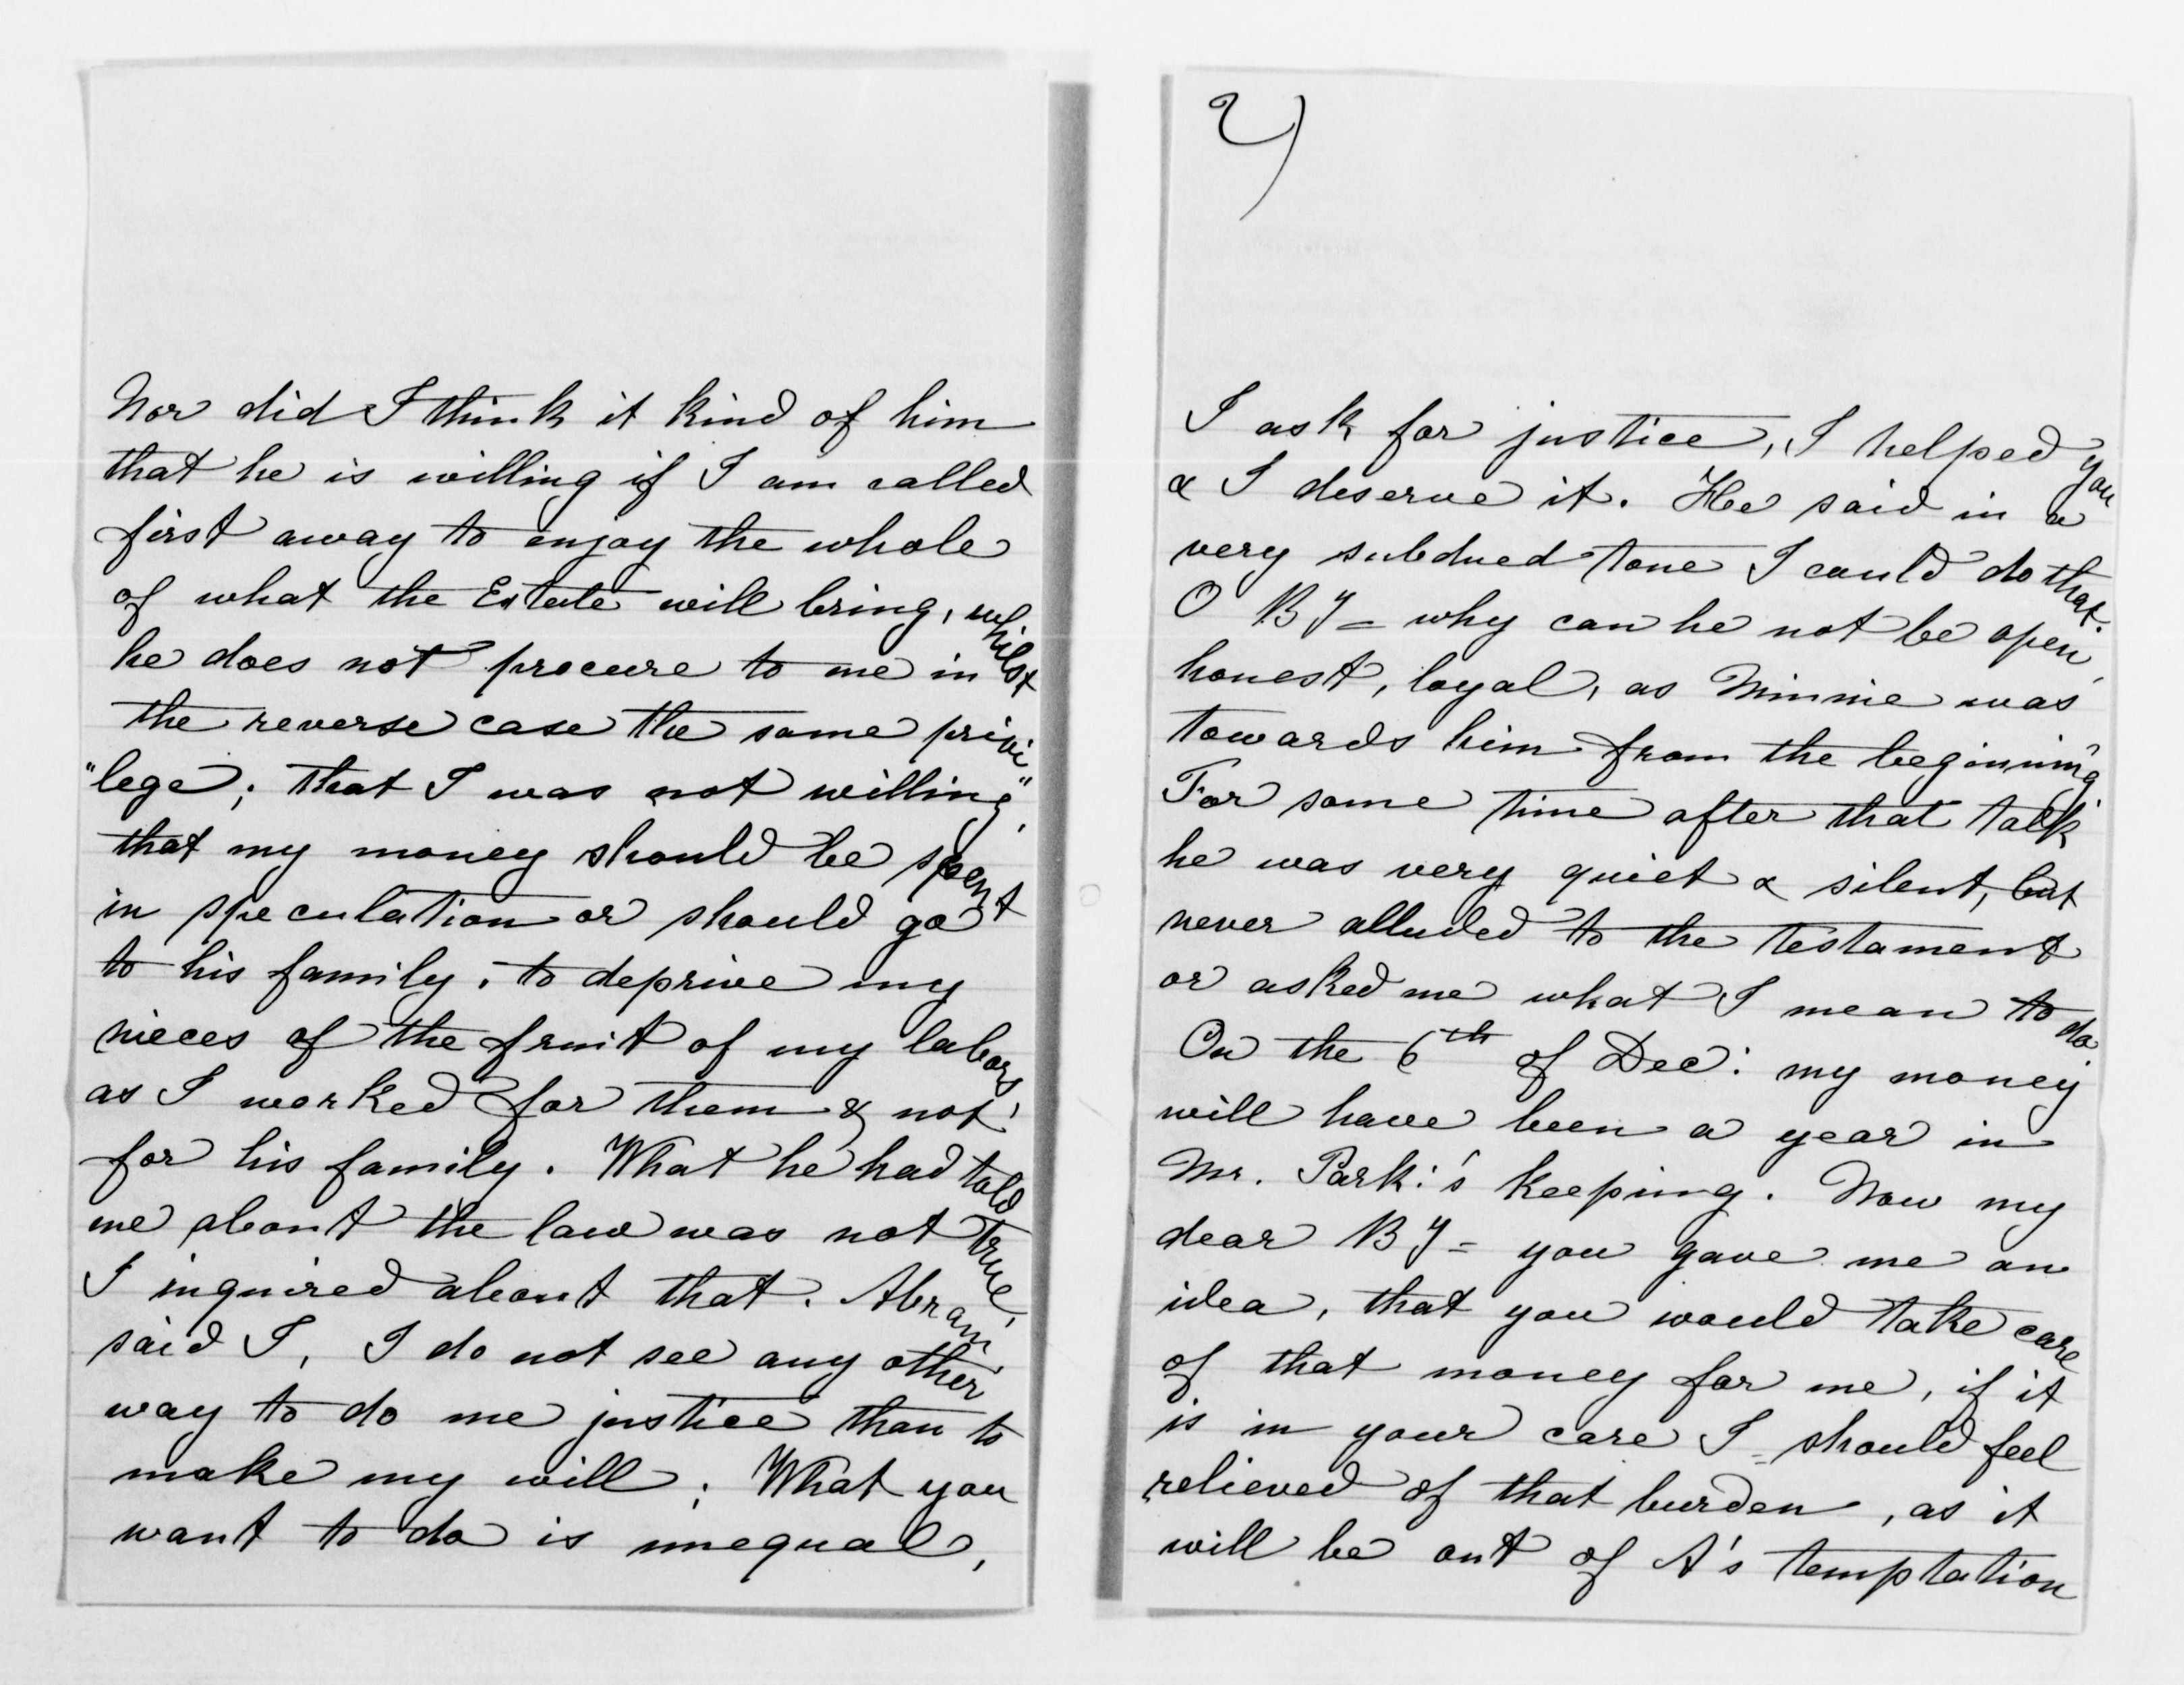 Nor did I think it kind of him
that he is willing if I am called
first away to enjoy the whole
of what the Estate will bring, whilst
he does not procure to me in
the reverse case the same privi"
"lege; that I was not willing,
that my money should be spent
in speculation or should go
to his family, to deprive my
nieces of the fruit of my labors,
as I worked for them & not
for his family. What he had told
me about the law was not true,
I inquired about that. Abram,
said I, I do not see any other
way to do me justice than to
make my will; What you
want to do is unequal,
2)
I ask for justice, I helped you
& I deserve it. He said in a
very subdued tone I could do that.
O B J = why can he not be open,
honest, loyal, as Minnie was
towards him from the beginning.
For some time after that talk
he was very quiet & silent, but
never alluded to the testament
or asked me what I mean to do.
On the 6th of Dec: my money
will have been a year in
Mr. Park:'s keeping. Now my
dear B J = you gave me an
idea, that you would take care
of that money for me, if it
is in your care I should feel
relieved of that burden, as it
will be out of A's temptation